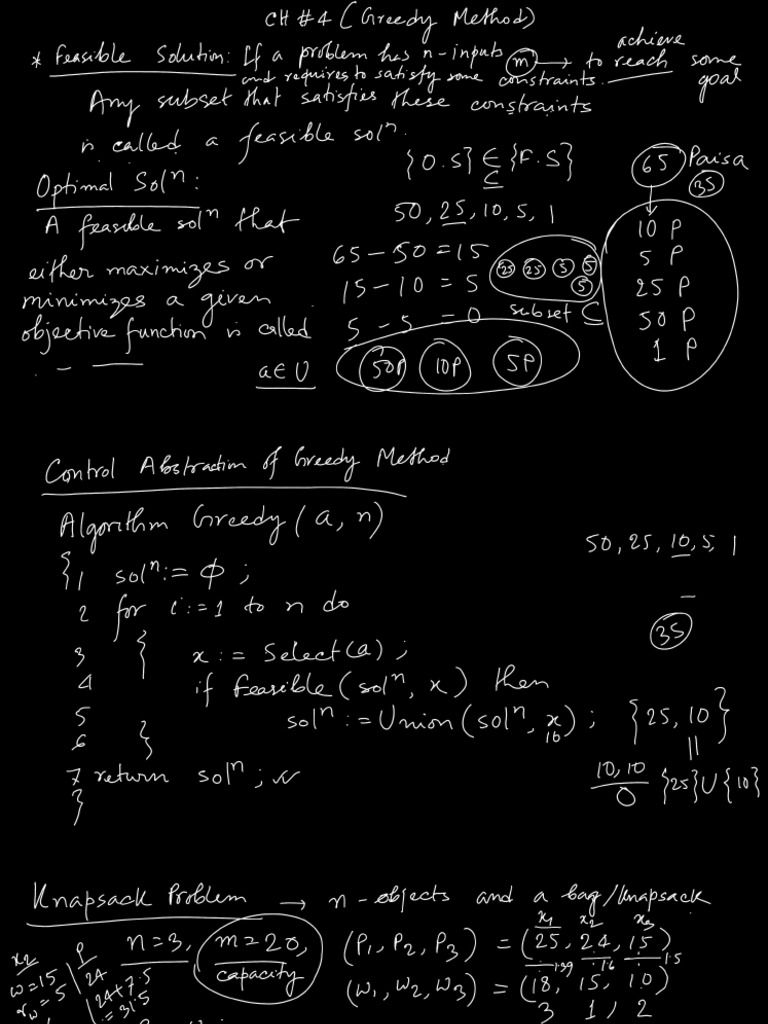 CH #4 (Greedy Method)
* Feasible Solution: If a problem has n-inputs (m) → to achieve reach some goal
and requires to satisfy some constraints.
Any subset that satisfies these constraints
is called a feasible solⁿ.
{O.S} ∈ {F.S}
C
65 Paisa
35
Optimal Solⁿ:
A feasible solⁿ that
either maximizes or
minimizes a given
objective function is called
a ∈ U
50, 25, 10, 5, 1
65 - 50 = 15
15 - 10 = 5
5 - 5 = 0
25 25 5 5 5
subset C
50P 10P 5P
10 P
5 P
25 P
50 P
1 P
Control Abstraction of Greedy Method
Algorithm Greedy (a, n)
{ 1 solⁿ := ϕ ;
2 for i := 1 to n do
3 { x := Select(a) ;
4 if feasible (solⁿ, x) then
5 solⁿ := Union (solⁿ, x) ;
10
6 }
7 return solⁿ ;
}
50, 25, 10, 5, 1
35
{25, 10}
||
{25} U {10}
10, 10
0
Knapsack Problem → n-objects and a bag/knapsack
n=3, m=20,
capacity
x₁ x₂ x₃
(P₁, P₂, P₃) = (25, 24, 15)
1.39 1.6 1.5
(w₁, w₂, w₃) = (18, 15, 10)
3 1, 2
x₂
w=15
rw=5
P
24
24+7.5
= 31.5